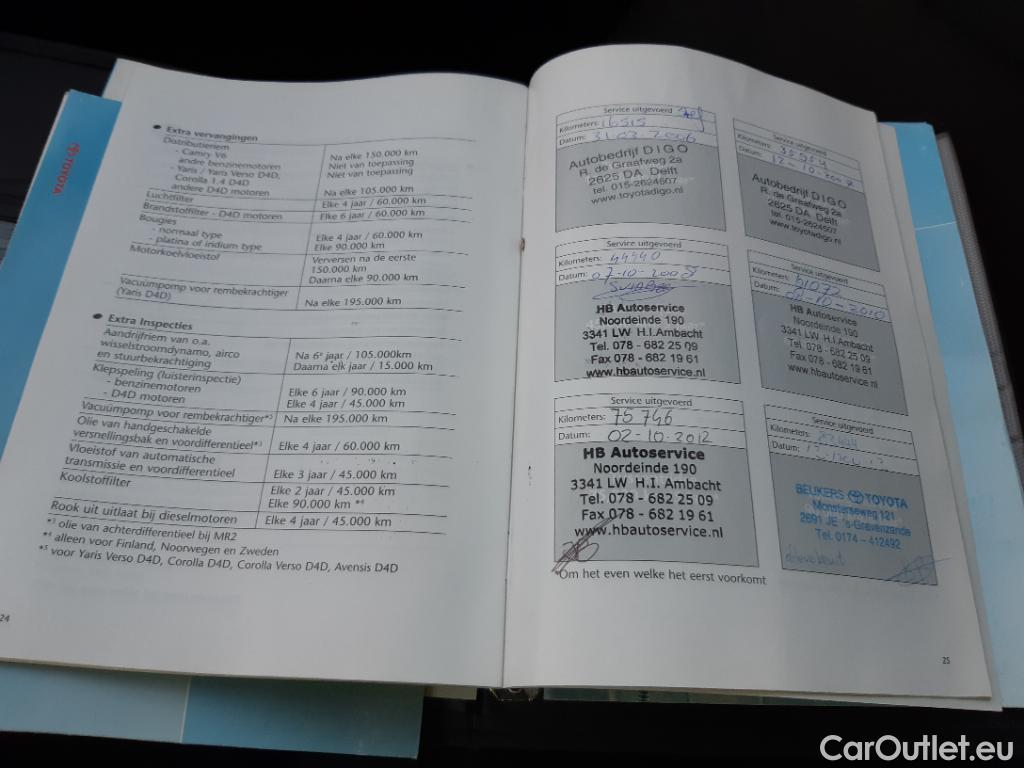 TOYOTA
• Extra vervangingen
Distributieriem
- Camry V6 Na elke 150.000 km
andre benzinemotoren Niet van toepassing
- Yaris / Yaris Verso D4D, Niet van toepassing
Corolla 1.4 D4D
andere D4D motoren Na elke 105.000 km
Luchtfilter Elke 4 jaar / 60.000 km
Brandstoffilter - D4D motoren Elke 6 jaar / 60.000 km
Bougies
- normaal type Elke 4 jaar / 60.000 km
- platina of iridium type Elke 90.000 km
Motorkoelvloeistof Verversen na de eerste
150.000 km
Daarna elke 90.000 km
Vacuümpomp voor rembekrachtiger
(Yaris D4D) Na elke 195.000 km
• Extra Inspecties
Aandrijfriem van o.a.
wisselstroomdynamo, airco Na 6e jaar / 105.000km
en stuurbekrachtiging Daarna elk jaar / 15.000 km
Klepspeling (luisterinspectie)
- benzinemotoren Elke 6 jaar / 90.000 km
- D4D motoren Elke 4 jaar / 45.000 km
Vacuümpomp voor rembekrachtiger*5 Na elke 195.000 km
Olie van handgeschakelde
versnellingsbak en voordifferentieel*3 Elke 4 jaar / 60.000 km
Vloeistof van automatische
transmissie en voordifferentieel Elke 3 jaar / 45.000 km
Koolstoffilter Elke 2 jaar / 45.000 km
Elke 90.000 km *4
Rook uit uitlaat bij dieselmotoren Elke 4 jaar / 45.000 km
*3 olie van achterdifferentieel bij MR2
*4 alleen voor Finland, Noorwegen en Zweden
*5 voor Yaris Verso D4D, Corolla D4D, Corolla Verso D4D, Avensis D4D
24
Service uitgevoerd
Kilometers: 16515
Datum: 31-03-2006
Autobedrijf DIGO
R. de Graafweg 2a
2625 DA Delft
tel. 015-2624607
www.toyotadigo.nl
Service uitgevoerd
Kilometers:
Datum: 12-10-2007
Autobedrijf DIGO
R. de Graafweg 2a
2625 DA Delft
tel. 015-2624607
www.toyotadigo.nl
Service uitgevoerd
Kilometers: 44440
Datum: 07-10-2008
HB Autoservice
Noordeinde 190
3341 LW H.I.Ambacht
Tel. 078 - 682 25 09
Fax 078 - 682 19 61
www.hbautoservice.nl
Service uitgevoerd
Kilometers: 61072
Datum: -10-2010
HB Autoservice
Noordeinde 190
3341 LW H.I.Ambacht
Tel. 078 - 682 25 09
Fax 078 - 682 19 61
www.hbautoservice.nl
Service uitgevoerd
Kilometers: 75746
Datum: 02-10-2012
HB Autoservice
Noordeinde 190
3341 LW H.I. Ambacht
Tel. 078 - 682 25 09
Fax 078 - 682 19 61
www.hbautoservice.nl
Service uitgevoerd
Kilometers:
Datum:
BEIJKERS TOYOTA
Monsterseweg 121
2691 JE 's-Gravenzande
Tel. 0174 - 412492
*Om het even welke het eerst voorkomt
25
CarOutlet.eu